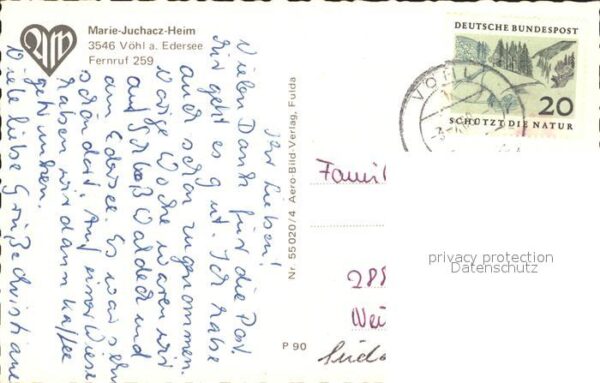 Marie-Juchacz-Heim
3546 Vöhl a. Edersee
Fernruf 259
Ihr Lieben!
Vielen Dank für die Post.
Mir geht es gut. Ich habe
auch schon zugenommen.
Vorige Woche waren wir
auf Schloß Waldeck und
am Edersee. Es war sehr
schön dort. Auf einer Wiese
haben wir dann Kaffee
getrunken.
Viele liebe Grüße Christiane
Nr. 55020/4 Aero-Bild-Verlag, Fulda
P 90
DEUTSCHE BUNDESPOST
20
SCHÜTZT DIE NATUR
VÖHL
Famil
privacy protection
Datenschutz